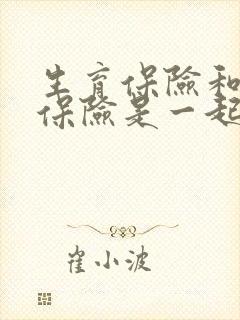 生育保險和
保險是一起
崔小波